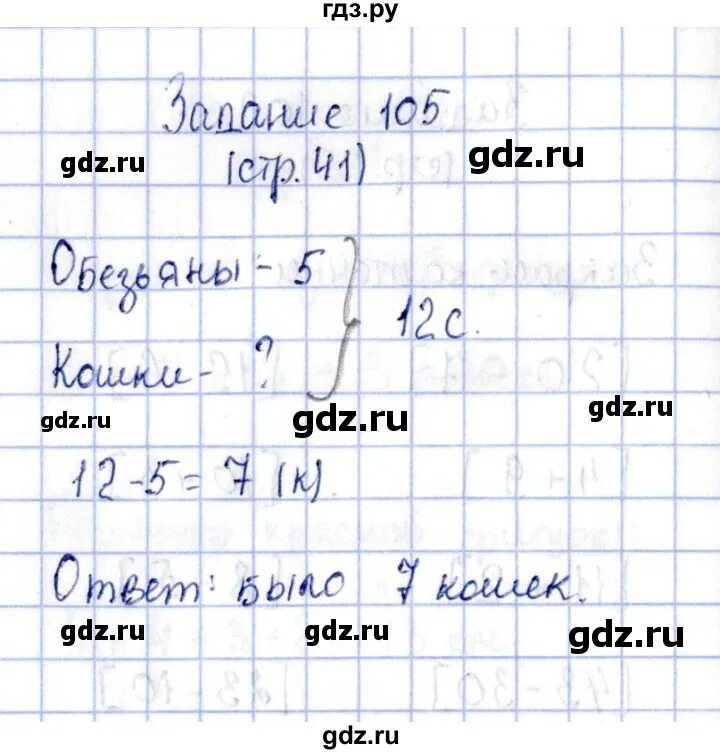 гдз.ру
Задание 105
gdz.ru
(стр. 41)
gdz.ru
Обезьяны - 5
12 с.
Кошки - ?
gdz.ru
gdz.ru
gdz.ru
12 - 5 = 7 (к)
Ответ: было 7 кошек.
gdz.ru
gdz.ru
gdz.ru
gdz.ru